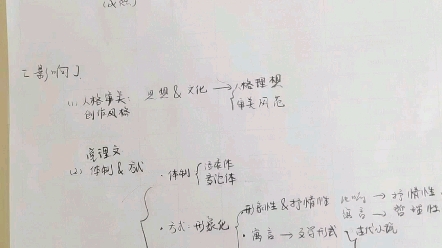 [影响]
(1) 人格审美: 思想 & 文化 → 人格理想
创作风标 审美风范
说理文
(2) 体制 & 方式 · 体制 语录体
专论体
形象性 & 抒情性 比兴 → 抒情性
寓言 → 哲理性
· 方式: 形象化
· 寓言 → 文学形式 古代小说